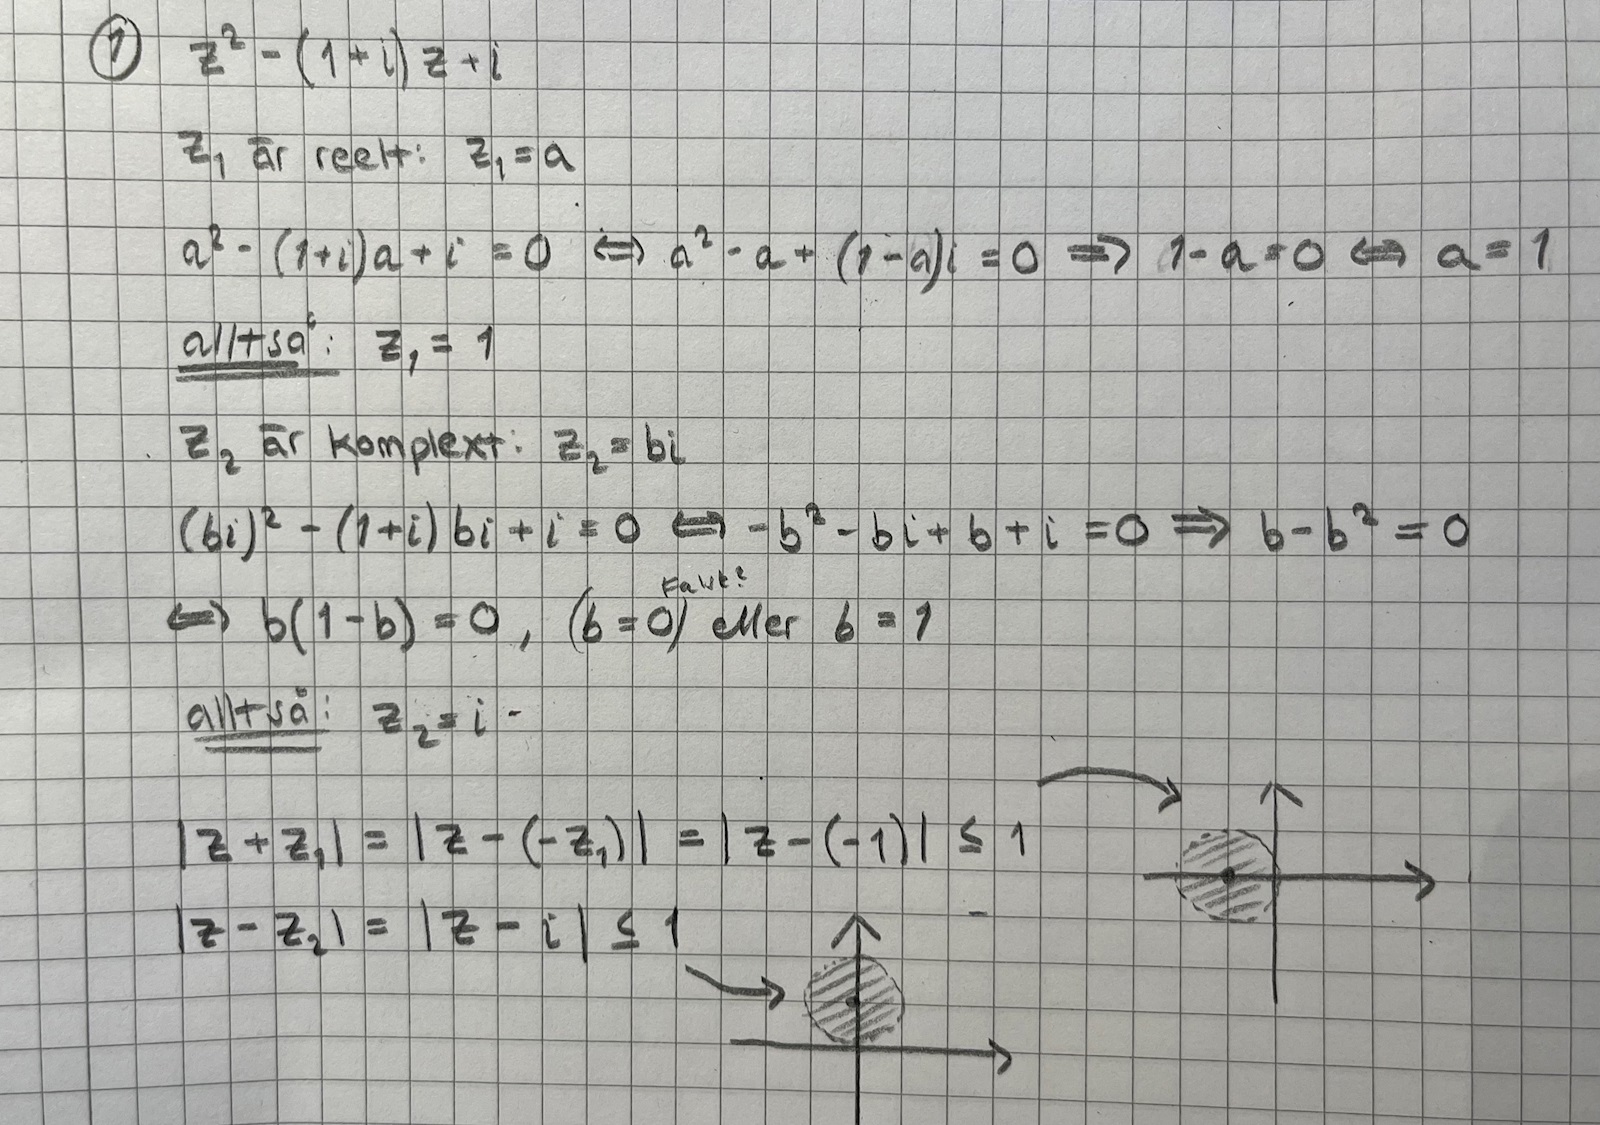 ① z² - (1+i) z + i
z₁ är reelt: z₁ = a
a² - (1+i)a + i = 0 ⟺ a² - a + (1-a)i = 0 ⟹ 1-a = 0 ⟺ a = 1
alltså: z₁ = 1
z₂ är komplext: z₂ = bi
(bi)² - (1+i) bi + i = 0 ⟺ -b² - bi + b + i = 0 ⟹ b - b² = 0
falsk?
⟺ b(1-b) = 0, (b = 0) eller b = 1
alltså: z₂ = i
|z + z₁| = |z - (-z₁)| = |z - (-1)| ≤ 1
|z - z₂| = |z - i| ≤ 1